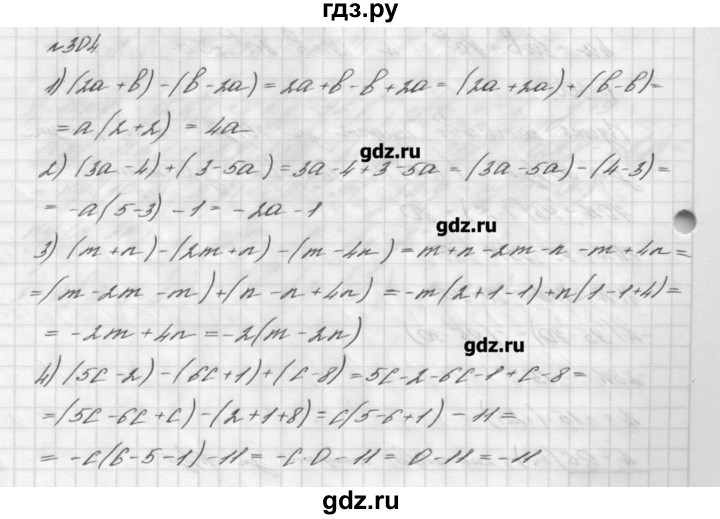 гдз.ру
№304
1) (2a + b) - (b - 2a) = 2a + b - b + 2a = (2a + 2a) + (b - b) =
= a(2 + 2) = 4a
gdz.ru
2) (3a - 4) + (3 - 5a) = 3a - 4 + 3 - 5a = (3a - 5a) - (4 - 3) =
= -a(5 - 3) - 1 = -2a - 1
gdz.ru
3) (m + n) - (2m + n) - (m - 4n) = m + n - 2m - n - m + 4n =
= (m - 2m - m) + (n - n + 4n) = -m(2 + 1 - 1) + n(1 - 1 + 4) =
= -2m + 4n = -2(m - 2n)
gdz.ru
4) (5c - 2) - (6c + 1) + (c - 8) = 5c - 2 - 6c - 1 + c - 8 =
= (5c - 6c + c) - (2 + 1 + 8) = c(5 - 6 + 1) - 11 =
= -c(6 - 5 - 1) - 11 = -c · 0 - 11 = 0 - 11 = -11.
gdz.ru